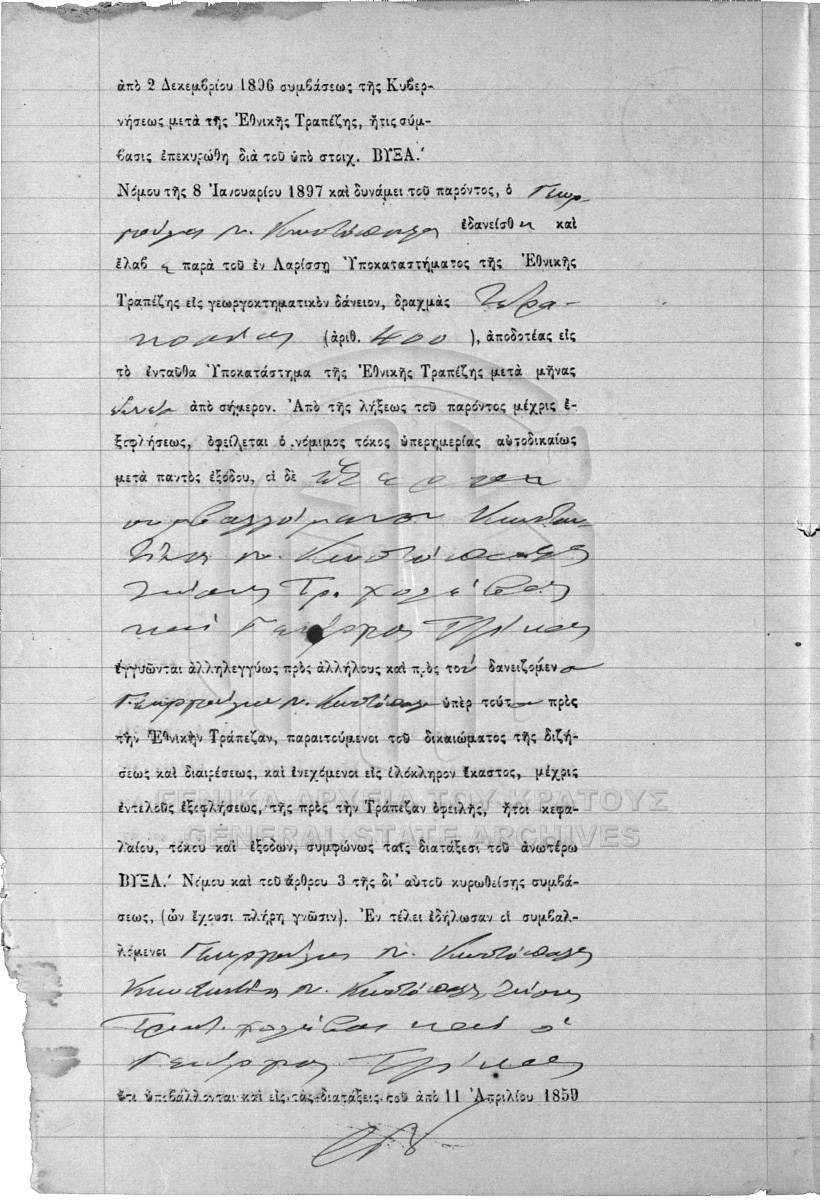 ἀπὸ 2 Δεκεμβρίου 1896 συμβάσεως τῆς Κυβερ-
νήσεως μετὰ τῆς Ἐθνικῆς Τραπέζης, ἥτις σύμ-
βασις ἐπεκυρώθη διὰ τοῦ ὑπὸ στοιχ. ΒΥΞΑ.´
Νόμου τῆς 8 Ἰανουαρίου 1897 καὶ δυνάμει τοῦ παρόντος, ὁ Γεωρ-
γούλας Ν. Κωστόπουλος ἐδανείσθη καὶ
ἔλαβε παρὰ τοῦ ἐν Λαρίσσῃ Ὑποκαταστήματος τῆς Ἐθνικῆς
Τραπέζης εἰς γεωργοκτηματικὸν δάνειον, δραχμὰς Τετρα-
κοσίας (ἀριθ. 400 ), ἀποδοτέας εἰς
τὸ ἐνταῦθα Ὑποκατάστημα τῆς Ἐθνικῆς Τραπέζης μετὰ μῆνας
ἐννέα ἀπὸ σήμερον. Ἀπὸ τῆς λήξεως τοῦ παρόντος μέχρις ἐ-
ξοφλήσεως, ὀφείλεται ὁ νόμιμος τόκος ὑπερημερίας αὐτοδικαίως
μετὰ παντὸς ἐξόδου, οἱ δὲ
συμβαλλόμενοι Κωνσταν-
τῖνος Ν. Κωστόπουλος
Τρ. Χολέβας
καὶ Γεώργιος
ἐγγυῶνται ἀλληλεγγύως πρὸς ἀλλήλους καὶ πρὸς τὸν δανειζόμενο
Γεωργούλαν Ν. Κωστόπουλον ὑπὲρ τούτου πρὸς
τὴν Ἐθνικὴν Τράπεζαν, παραιτούμενοι τοῦ δικαιώματος τῆς διζή-
σεως καὶ διαιρέσεως, καὶ ἐνεχόμενοι εἰς ὁλόκληρον ἕκαστος, μέχρις
ΓΕΝΙΚΑ ΑΡΧΕΙΑ ΤΟΥ ΚΡΑΤΟΥΣ
ἐντελοῦς ἐξοφλήσεως, τῆς πρὸς τὴν Τράπεζαν ὀφειλῆς, ἤτοι κεφα-
GENERAL STATE ARCHIVES
λαίου, τόκου καὶ ἐξόδων, συμφώνως ταῖς διατάξεσι τοῦ ἀνωτέρω
ΒΥΞΑ.´ Νόμου καὶ τοῦ ἄρθρου 3 τῆς δι' αὐτοῦ κυρωθείσης συμβά-
σεως, (ὧν ἔχουσι πλήρη γνῶσιν). Ἐν τέλει ἐδήλωσαν οἱ συμβαλ-
λόμενοι Γεωργούλας Ν. Κωστόπουλος
Κωνσταντῖνος Ν. Κωστόπουλος
Χολέβας καὶ ὁ
Γεώργιος
ὅτι ὑποβάλλονται καὶ εἰς τὰς διατάξεις τοῦ ἀπὸ 11 Ἀπριλίου 1859